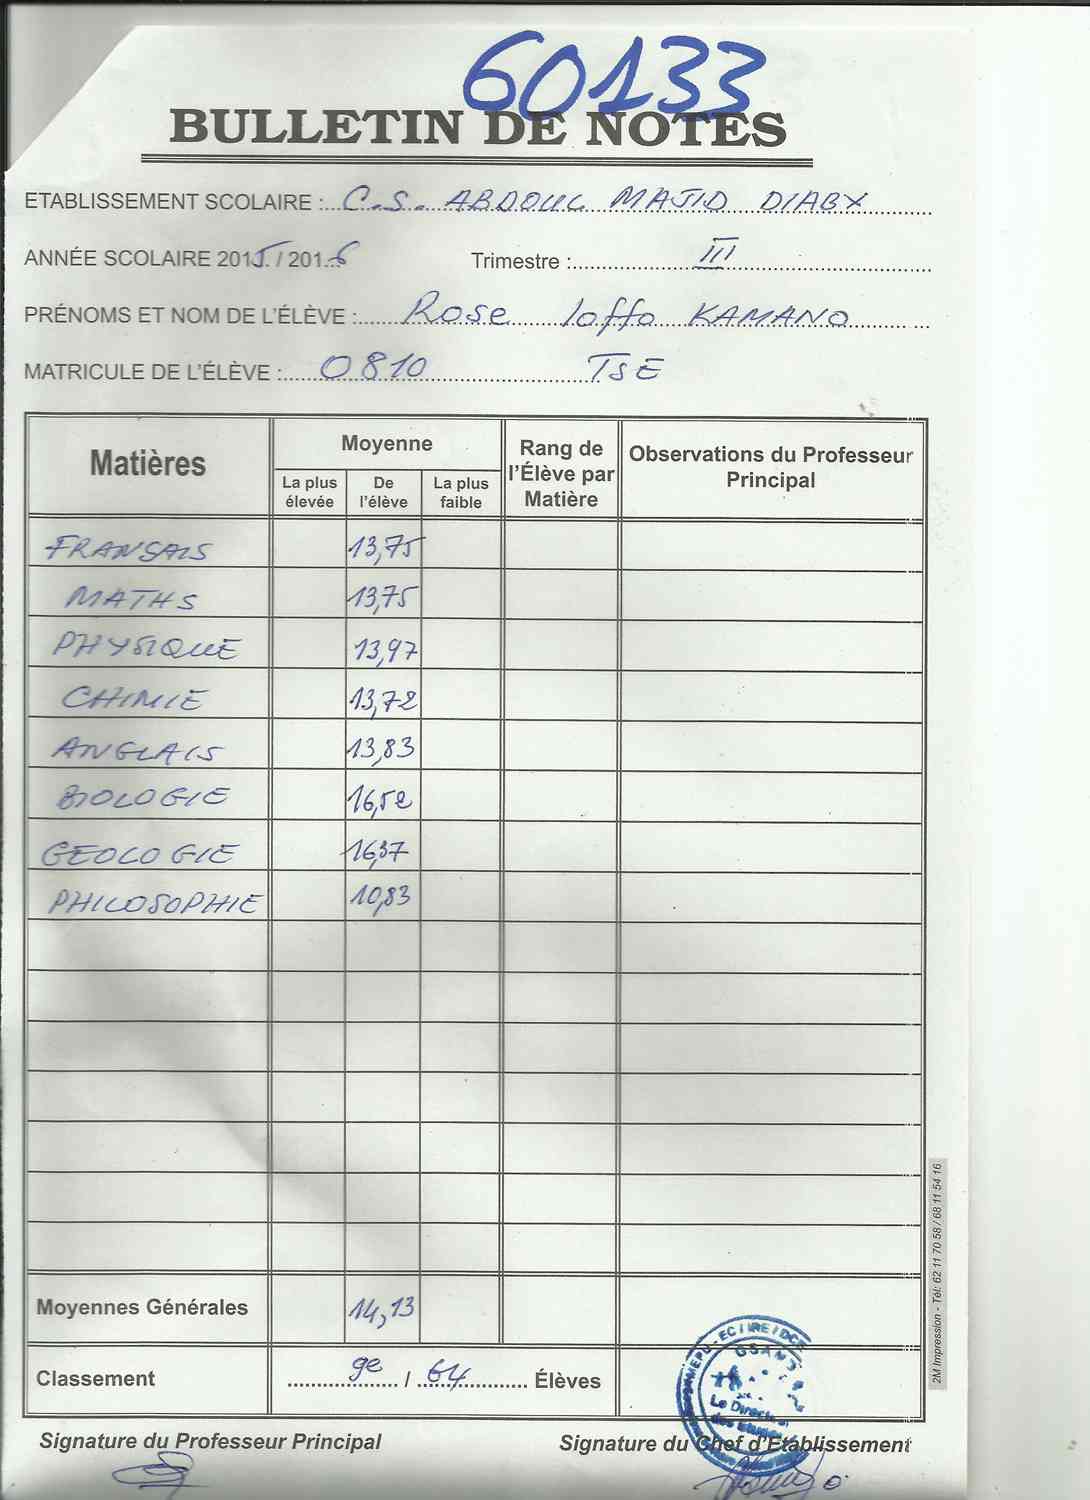 60133
BULLETIN DE NOTES
ETABLISSEMENT SCOLAIRE : C.S. ABDOUL MAJID DIABY
ANNÉE SCOLAIRE 2015 / 2016 Trimestre : III
PRÉNOMS ET NOM DE L'ÉLÈVE : Rose Loffo KAMANO
MATRICULE DE L'ÉLÈVE : 0810 TSE
Matières Moyenne Rang de l'Élève par Matière Observations du Professeur Principal
La plus élevée De l'élève La plus faible
FRANSAIS 13,75
MATHS 13,75
PHYSIQUE 13,97
CHIMIE 13,72
ANGLAIS 13,83
BIOLOGIE 16,52
GEOLOGIE 16,37
PHILOSOPHIE 10,83
Moyennes Générales 14,13
Classement 9e / 64 Élèves
GSAM
Le Directeur
des Etudes
Signature du Professeur Principal Signature du Chef d'Etablissement
2M Impression - Tél: 62 11 70 58 / 68 11 54 16